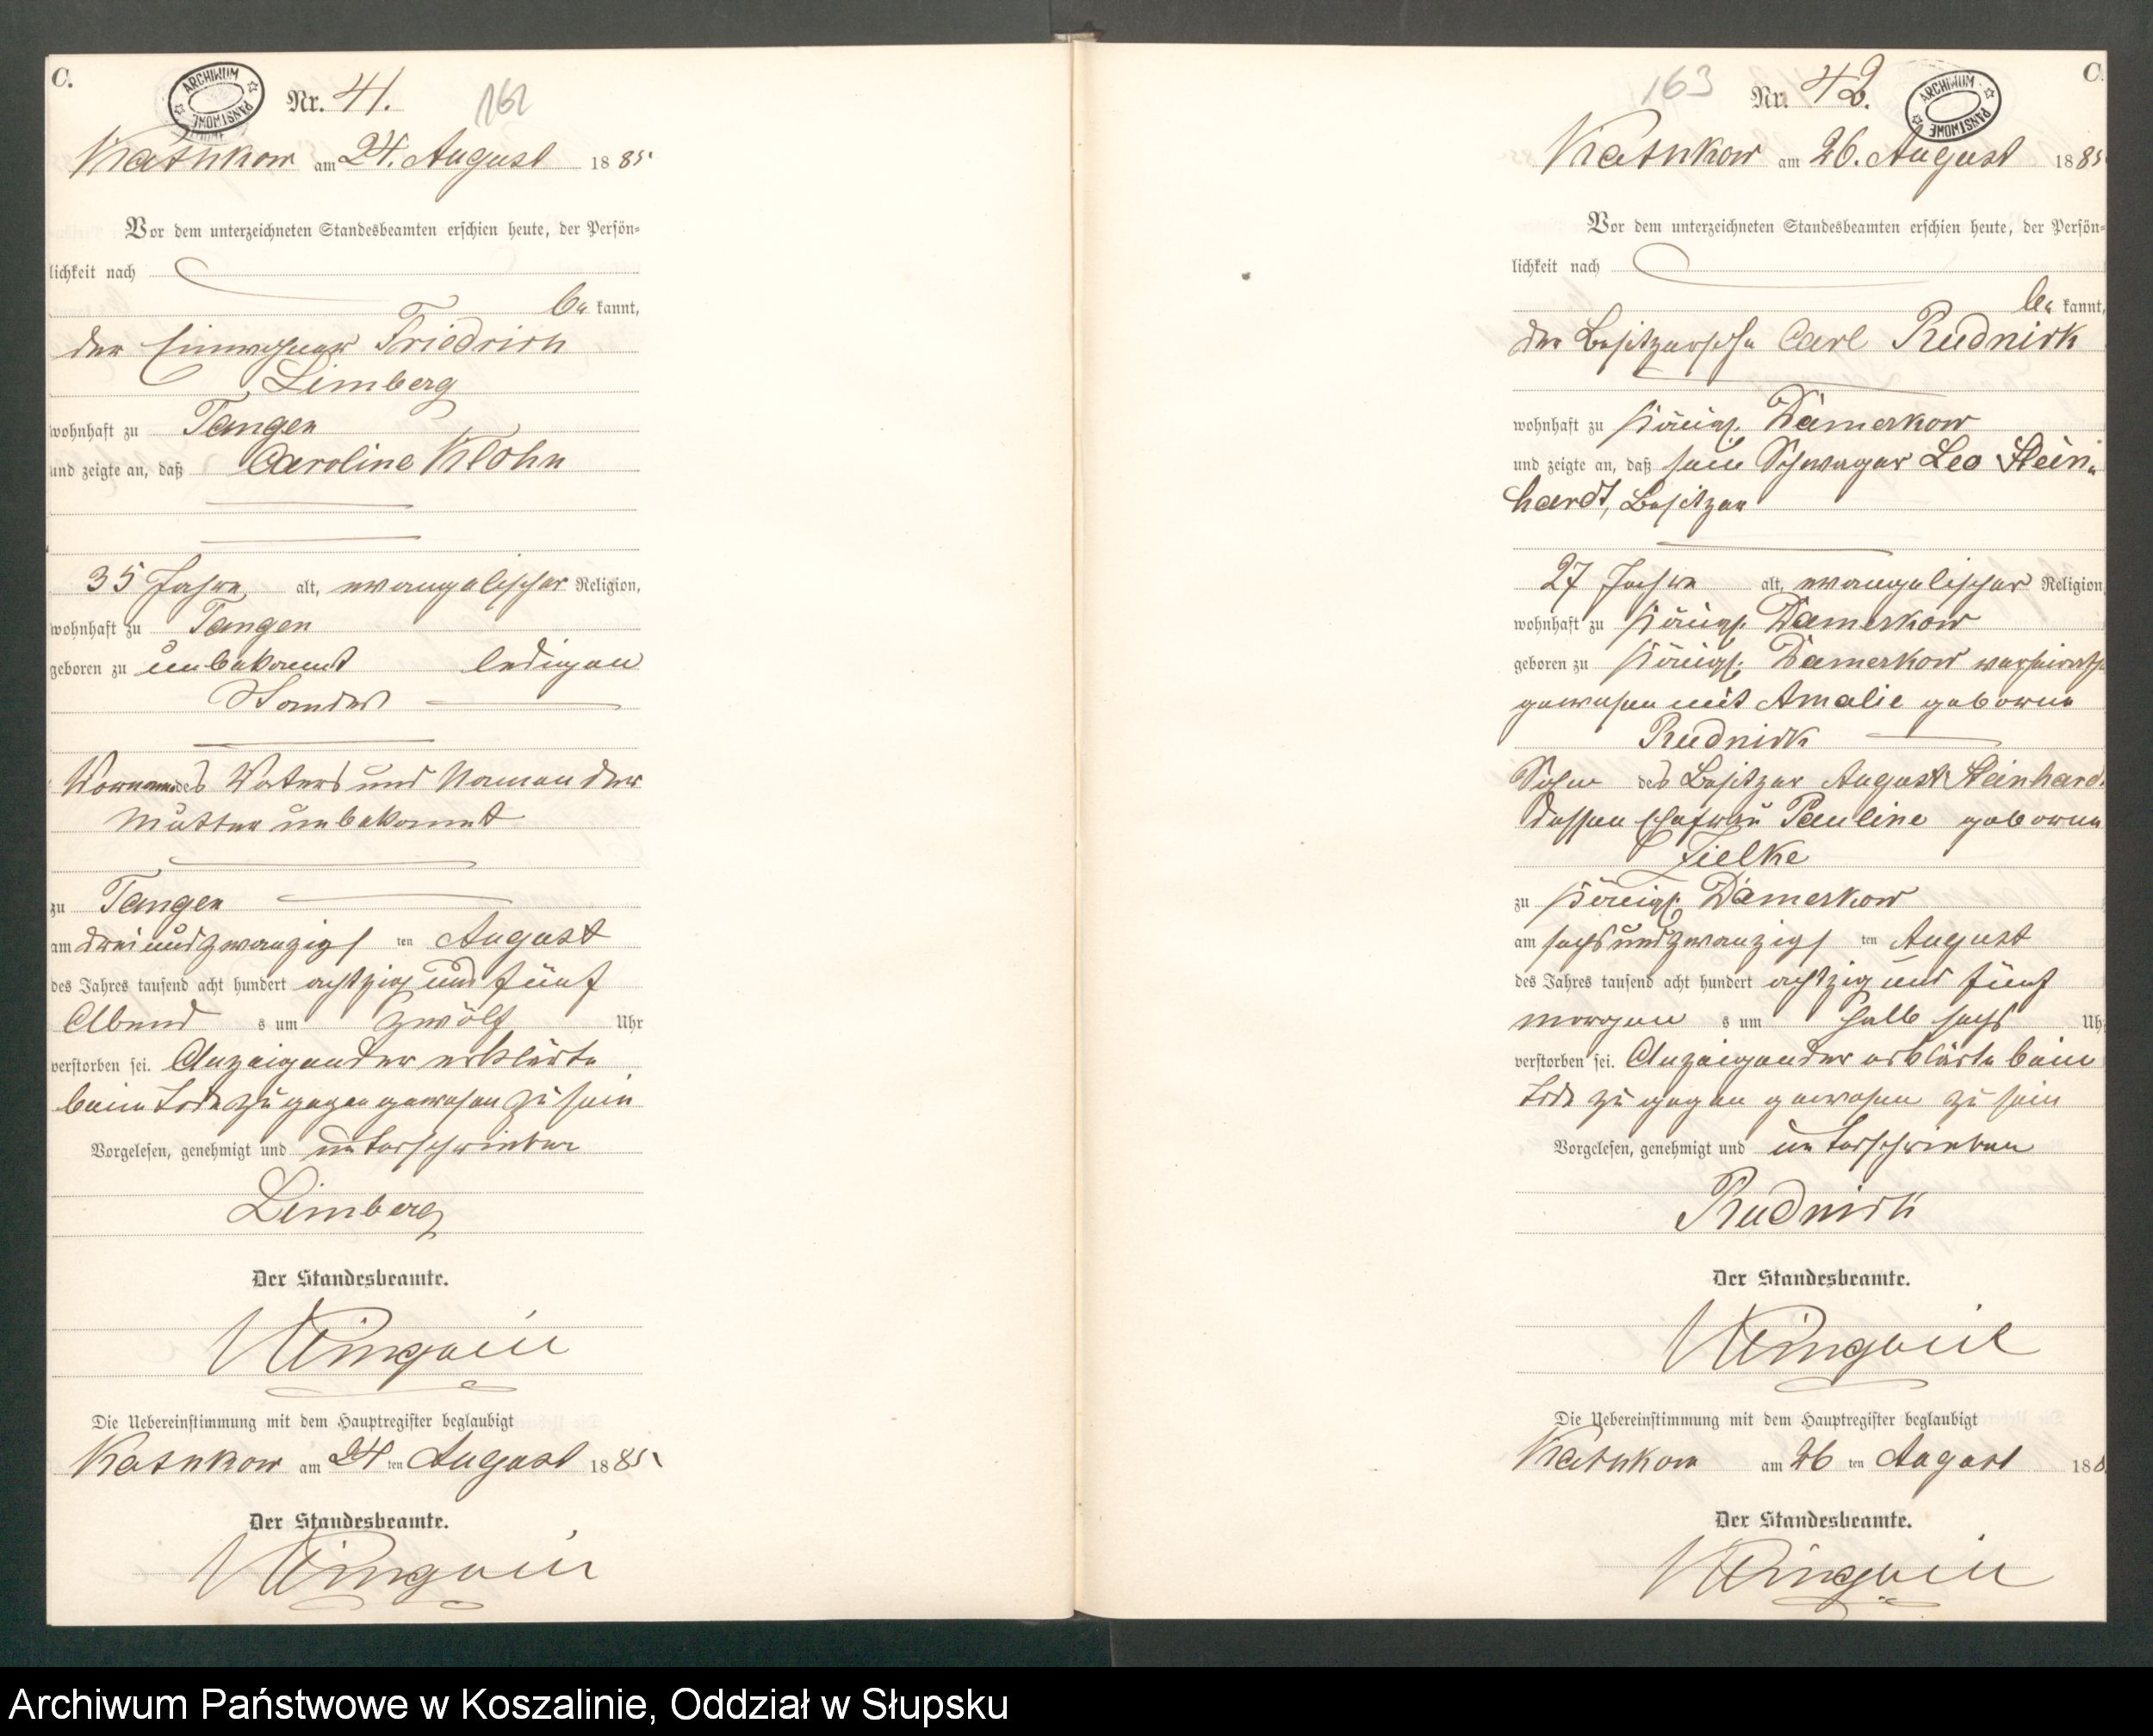 C.
ARCHIWUM PAŃSTWOWE
Nr. 41.
162
Kathkow am 24. August 1885
Vor dem unterzeichneten Standesbeamten erschien heute, der Persön=
lichkeit nach
be kannt,
der Einwohner Friedrich
Limberg
wohnhaft zu Tangen
und zeigte an, daß Caroline Klohn
35 Jahre alt, evangelischer Religion,
wohnhaft zu Tangen
geboren zu unbekannt ledigen
Standes
Vornam des Vaters und Namen der
Mutter unbekannt
zu Tangen
am dreiundzwanzigs ten August
des Jahres tausend acht hundert achtzig und fünf
Abend s um zwölf Uhr
verstorben sei. Anzeigender erklärte
beim Tode zugegen gewesen zu sein
Vorgelesen, genehmigt und unterschrieben
Limberg
Der Standesbeamte.
Die Uebereinstimmung mit dem Hauptregister beglaubigt
Kathkow am 24 ten August 1885
Der Standesbeamte.
C.
163
Nr. 42.
ARCHIWUM PAŃSTWOWE
Kathkow am 26. August 1885
Vor dem unterzeichneten Standesbeamten erschien heute, der Persön=
lichkeit nach
be kannt,
der Besitzersohn Carl Rudnick
wohnhaft zu Königl. Damerkow
und zeigte an, daß sein Schwager Leo Stein=
hardt, Besitzer
27 Jahre alt, evangelischer Religion,
wohnhaft zu Königl. Damerkow
geboren zu Königl. Damerkow verheirathet
gewesen mit Amalie geborne
Rudnick
Sohn des Besitzer August Steinhard.
dessen Ehefrau Pauline geborne
Zielke
zu Königl. Damerkow
am sechsundzwanzigs ten August
des Jahres tausend acht hundert achtzig und fünf
Morgen s um halb sechs Uhr
verstorben sei. Anzeigender erklärte beim
Tode zu gegen gewesen zu sein
Vorgelesen, genehmigt und unterschrieben
Rudnick
Der Standesbeamte.
Die Uebereinstimmung mit dem Hauptregister beglaubigt
Kathkow am 26 ten August 188
Der Standesbeamte.
Archiwum Państwowe w Koszalinie, Oddział w Słupsku